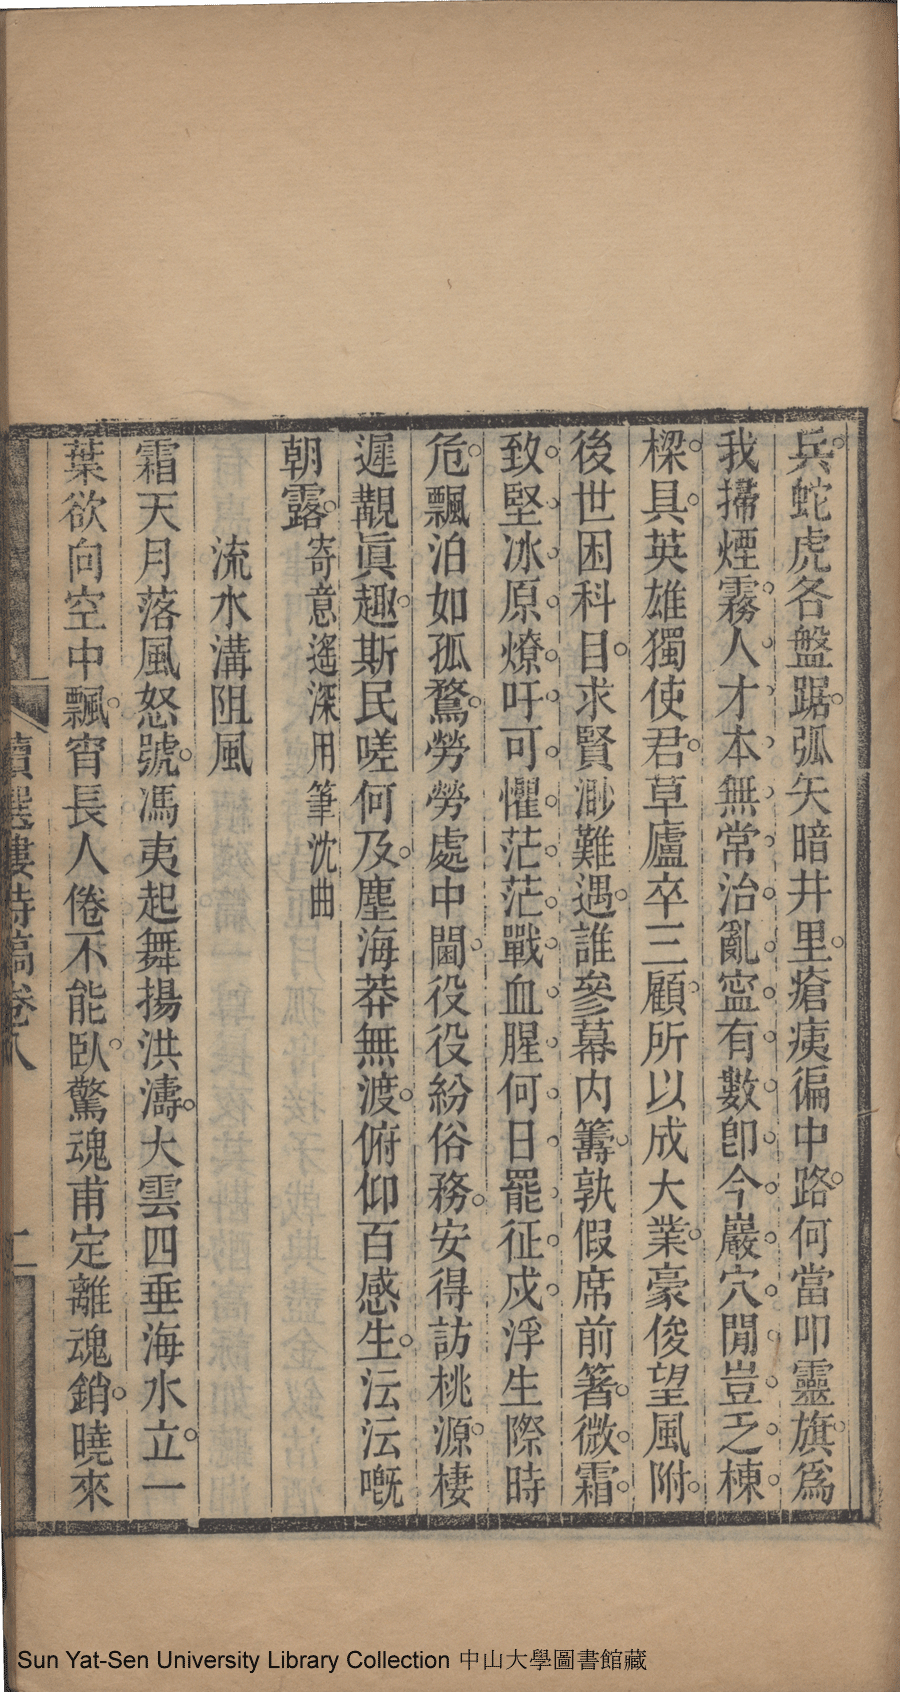 兵蛇虎各盤踞弧矢暗井里瘡痍徧中路何當叩靈旗爲
我掃煙霧人才本無常治亂寍有數卽今巖穴閒豈乏棟
樑具英雄獨使君草廬卒三顧所以成大業豪俊望風附
後世困科目求賢渺難遇誰參幕内籌孰假席前箸微霜
致堅冰原燎吁可懼茫茫戰血腥何日罷征戍浮生際時
危飄泊如孤鶩勞勞處中閫役役紛俗務安得訪桃源棲
遲觀眞趣斯民嗟何及塵海莽無渡俯仰百感生沄沄嘅
朝露寄意遙深用筆沈曲
流水溝阻風
霜天月落風怒號馮夷起舞揚洪濤大雲四垂海水立一
葉欲向空中飄宵長人倦不能臥驚魂甫定離魂銷曉來
讀選樓詩稿卷八
二
Sun Yat-Sen University Library Collection 中山大學圖書館藏